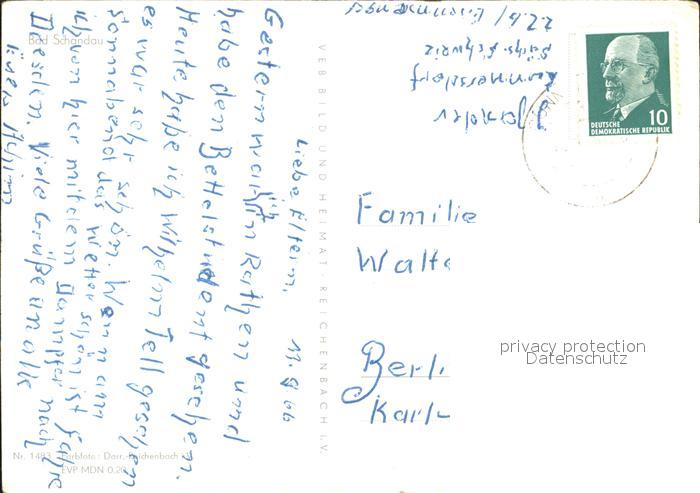 Bad Schandau
Liebe Eltern, 13.9.66
Gestern war ich in Rathen und
habe den Bettelstudent gesehen.
Heute habe ich Wilhelm Tell gesehen
es war sehr schön. Wenn am
Sonnabend das Wetter schön ist fahre
ich von hier mit dem Dampfer nach
Dresden. Viele Grüße an alle
Achim
VEB BILD UND HEIMAT · REICHENBACH i. V.
Nr. 1483 Farbfoto: Darr, Reichenbach
EVP MDN 0,20
Sächs. Schweiz
z.Z. b/
DEUTSCHE
DEMOKRATISCHE REPUBLIK
10
Familie
Berl
Karl
privacy protection
Datenschutz